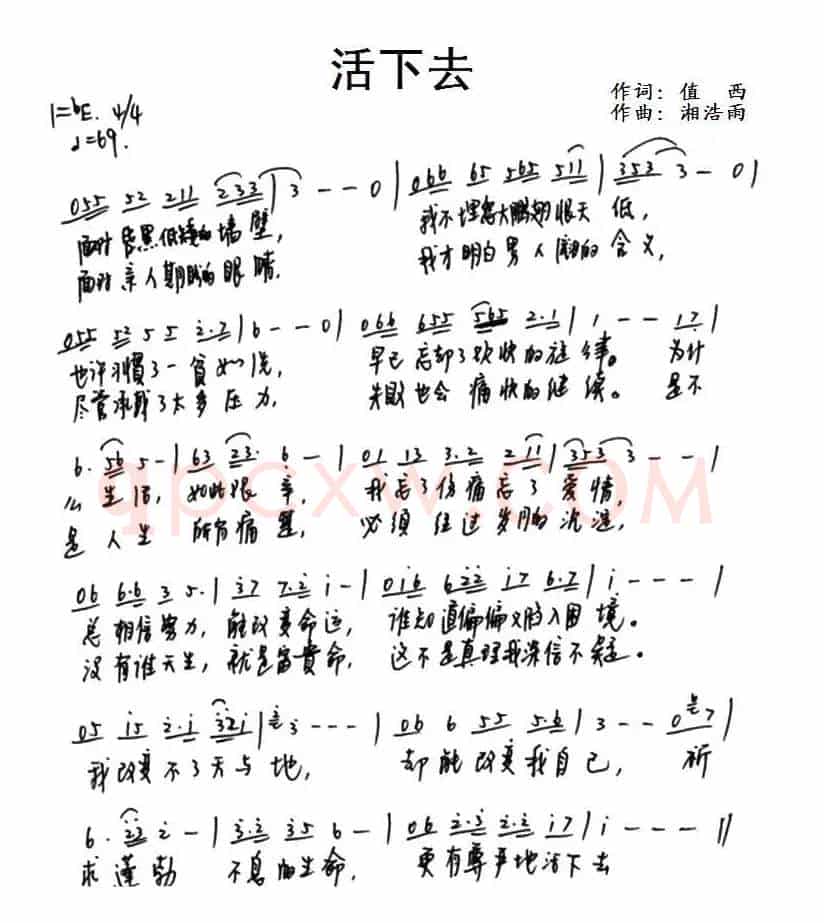 活下去
作词：值 西
作曲：湘浩雨
1=bE. 4/4
♩=69.
055 52 211 233 | 3 - - 0 | 066 65 565 511 | 353 3 - 0 |
面对 黑低矮的墙壁, 我不埋怨大鹏翅恨天低,
面对亲人期盼的眼睛. 我才明白男人 的含义,
055 52 5 5 2.7 | 6 - - 0 | 066 655 565 2.1 | 1 - - 17 |
也许习惯了一贫如洗, 早已忘却了欢快的旋律。 为什
尽管承载了太多压力, 失败也会痛快的继续。 是不
6. 56 5 - | 63 23. 6 - | 01 13 3.2 2 11 | 353 3 - - |
么生活, 如此艰辛, 我忘了伤痛忘了爱情,
是人生 所有痛楚, 必须经过岁月的沉淀,
06 6.6 3 5. | 37 7.2 i - | 0i6 622 i7 6.7 | i - - - |
总相信努力, 能改变命运, 谁知道偏偏又陷入困境。
没有谁天生, 就是富贵命, 这不是真理我深信不疑。
05 i5 2.i 32i | 3 - - - | 06 6 55 5.6 | 3 - - 0 7 |
我改变不了天与地, 却能改变我自己, 祈
6. 23 2 - | 3.2 35 6 - | 06 2.3 2.2 i7 | i - - - ||
求蓬勃 不息的生命, 更有尊严地活下去
qpcxw.com